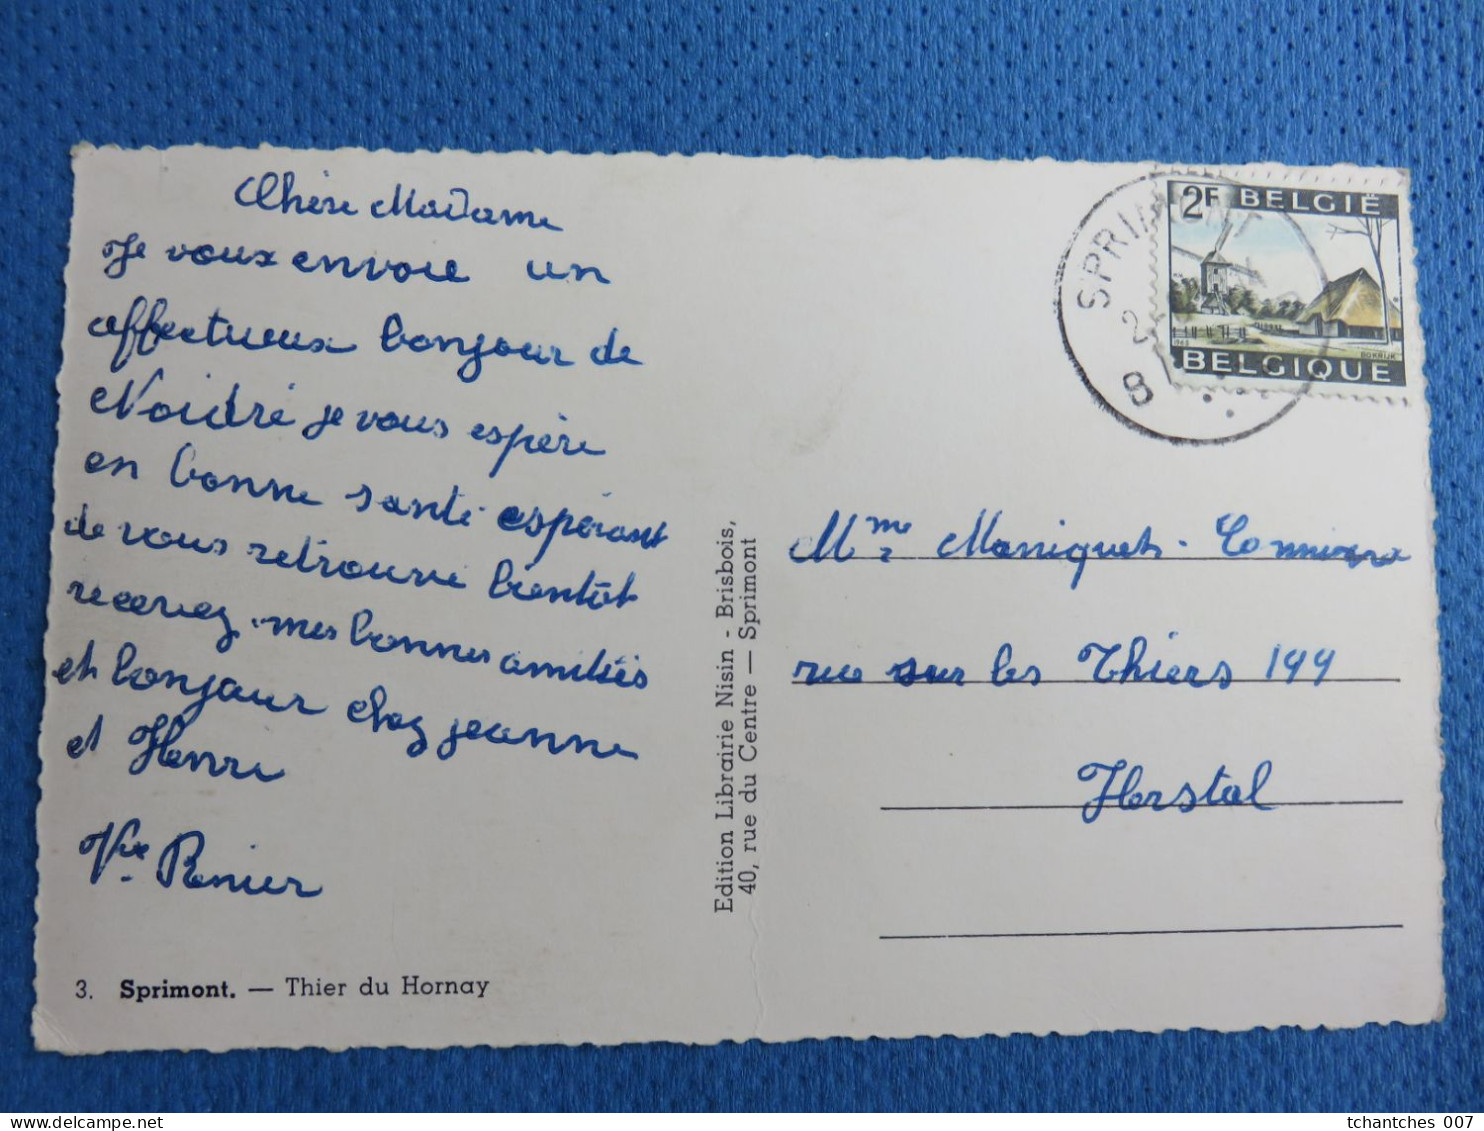 Chère Madame
Je vous envoie un
affectueux bonjour de
Noidré je vous espère
en bonne santé espérant
de vous retrouve bientôt
recevez mes bonnes amitiés
et bonjour chez jeanne
et Henri
Vve Renier
3. Sprimont. — Thier du Hornay
Edition Librairie Nisin - Brisbois,
40, rue du Centre — Sprimont
SPRIMONT
2
B
2F BELGIË
BOKRIJK
BELGIQUE
Mme Maniquet -
rue sur les Thiers 199
Herstal
tchantches 007